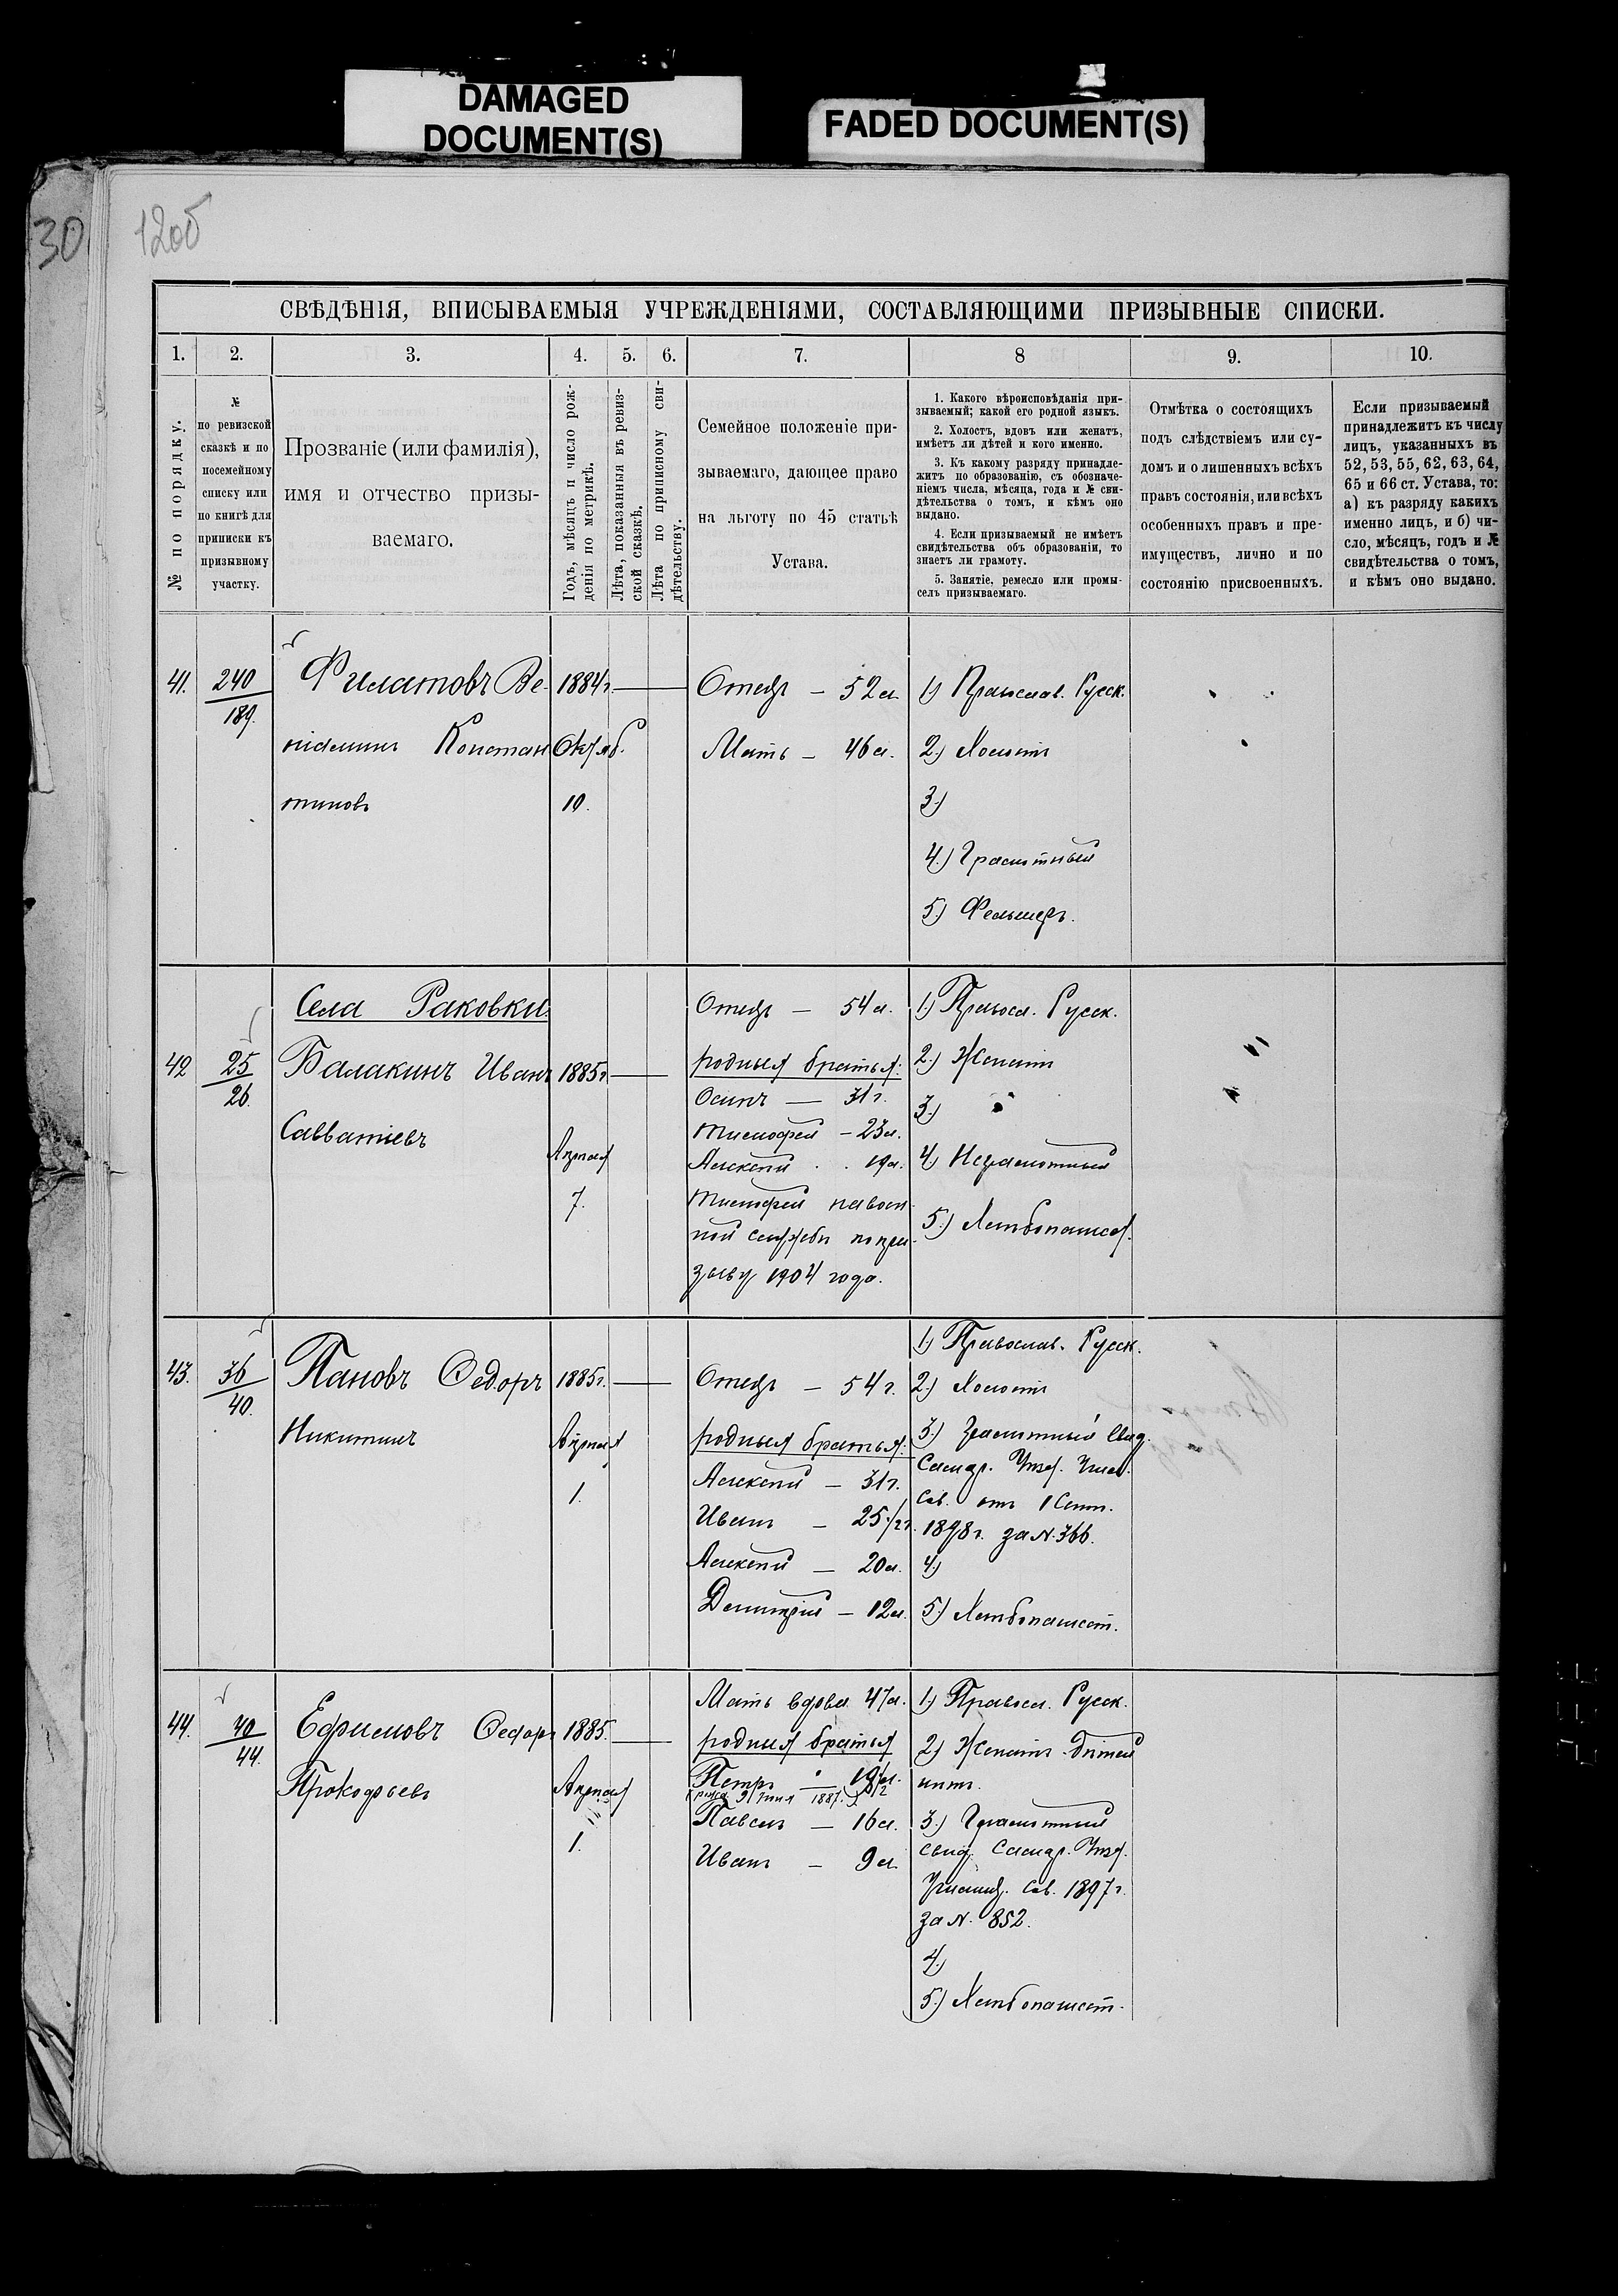 DAMAGED
DOCUMENT(S)
FADED DOCUMENT(S)
30
120б
СВѢДѢНІЯ, ВПИСЫВАЕМЫЯ УЧРЕЖДЕНІЯМИ, СОСТАВЛЯЮЩИМИ ПРИЗЫВНЫЕ СПИСКИ.
1. 2. 3. 4. 5. 6. 7. 8 9. 10.
№ по порядку.
№
по ревизской
сказкѣ и по
посемейному
списку или
по книгѣ для
приписки къ
призывному
участку.
Прозваніе (или фамилія),
имя и отчество призы-
ваемаго.
Годъ, мѣсяцъ и число рож-
денія по метрикѣ.
Лѣта, показанныя въ ревиз-
ской сказкѣ.
Лѣта по приписному сви-
дѣтельству.
Семейное положеніе при-
зываемаго, дающее право
на льготу по 45 статьѣ
Устава.
1. Какого вѣроисповѣданія при-
зываемый; какой его родной языкъ.
2. Холостъ, вдовъ или женатъ,
имѣетъ ли дѣтей и кого именно.
3. Къ какому разряду принадле-
житъ по образованію, съ обозначе-
ніемъ числа, мѣсяца, года и № сви-
дѣтельства о томъ, и кѣмъ оно
выдано.
4. Если призываемый не имѣетъ
свидѣтельства объ образованіи, то
знаетъ ли грамоту.
5. Занятіе, ремесло или промы-
селъ призываемаго.
Отмѣтка о состоящихъ
подъ слѣдствіемъ или су-
домъ и о лишенныхъ всѣхъ
правъ состоянія, или всѣхъ
особенныхъ правъ и пре-
имуществъ, лично и по
состоянію присвоенныхъ.
Если призываемый
принадлежитъ къ числу
лицъ, указанныхъ въ
52, 53, 55, 62, 63, 64,
65 и 66 ст. Устава, то:
а) къ разряду какихъ
именно лицъ, и б) чи-
сло, мѣсяцъ, годъ и №
свидѣтельства о томъ,
и кѣмъ оно выдано.
41.
240
189.
Филатовъ Ве-
ніаминъ Констан
тиновъ
1884 г.
Октяб.
10.
Отецъ – 52 л.
Мать – 46 л.
1) Православ. Русск.
2.) Холостъ
3.)
4.) Грамотный
5.) Фельшеръ.
Села Раковки.
42
25
26.
Балакинъ Иванъ
Савватіевъ
1885 г.
Апреля
7.
Отецъ – 54 л.
родныя братья:
Осипъ – 31 г.
Тимофей – 23 л.
Алексей . . 19 л.
Тимофей на воен
ной службѣ по при-
зыву 1904 года.
1.) Правосл. Русск.
2.) Женатъ
3.)
4) Неграмотный
5.) Хлебопашес.
43.
36
40.
Пановъ Федоръ
Никитинъ
1885 г.
Апреля
1.
Отецъ – 54 г.
родныя братья:
Алексей – 31 г.
Иванъ – 25 1/2 г.
Алексей – 20 л.
Дмитрій – 12 л.
1) Православ. Русск.
2.) Холостъ
3.) Грамотный Свид.
Самар. Уезд. Учил.
Сов. отъ 1 Сент.
1898 г. за N. 366.
4)
5) Хлебопашест.
44.
40
44.
Ефимовъ Федоръ
Прокофьевъ
1885.
Апреля
1.
Мать вдова 47 л.
родныя братья
Петръ – 19 л.
Павелъ – 16 л.
Иванъ – 9 л.
1.) Правосл. Русск.
2) Женатъ детей
нетъ.
3.) Грамотный
свид. Самар. Уезд.
Училищ. Сов. 1897 г.
за N. 852.
4.)
5.) Хлебопашест.